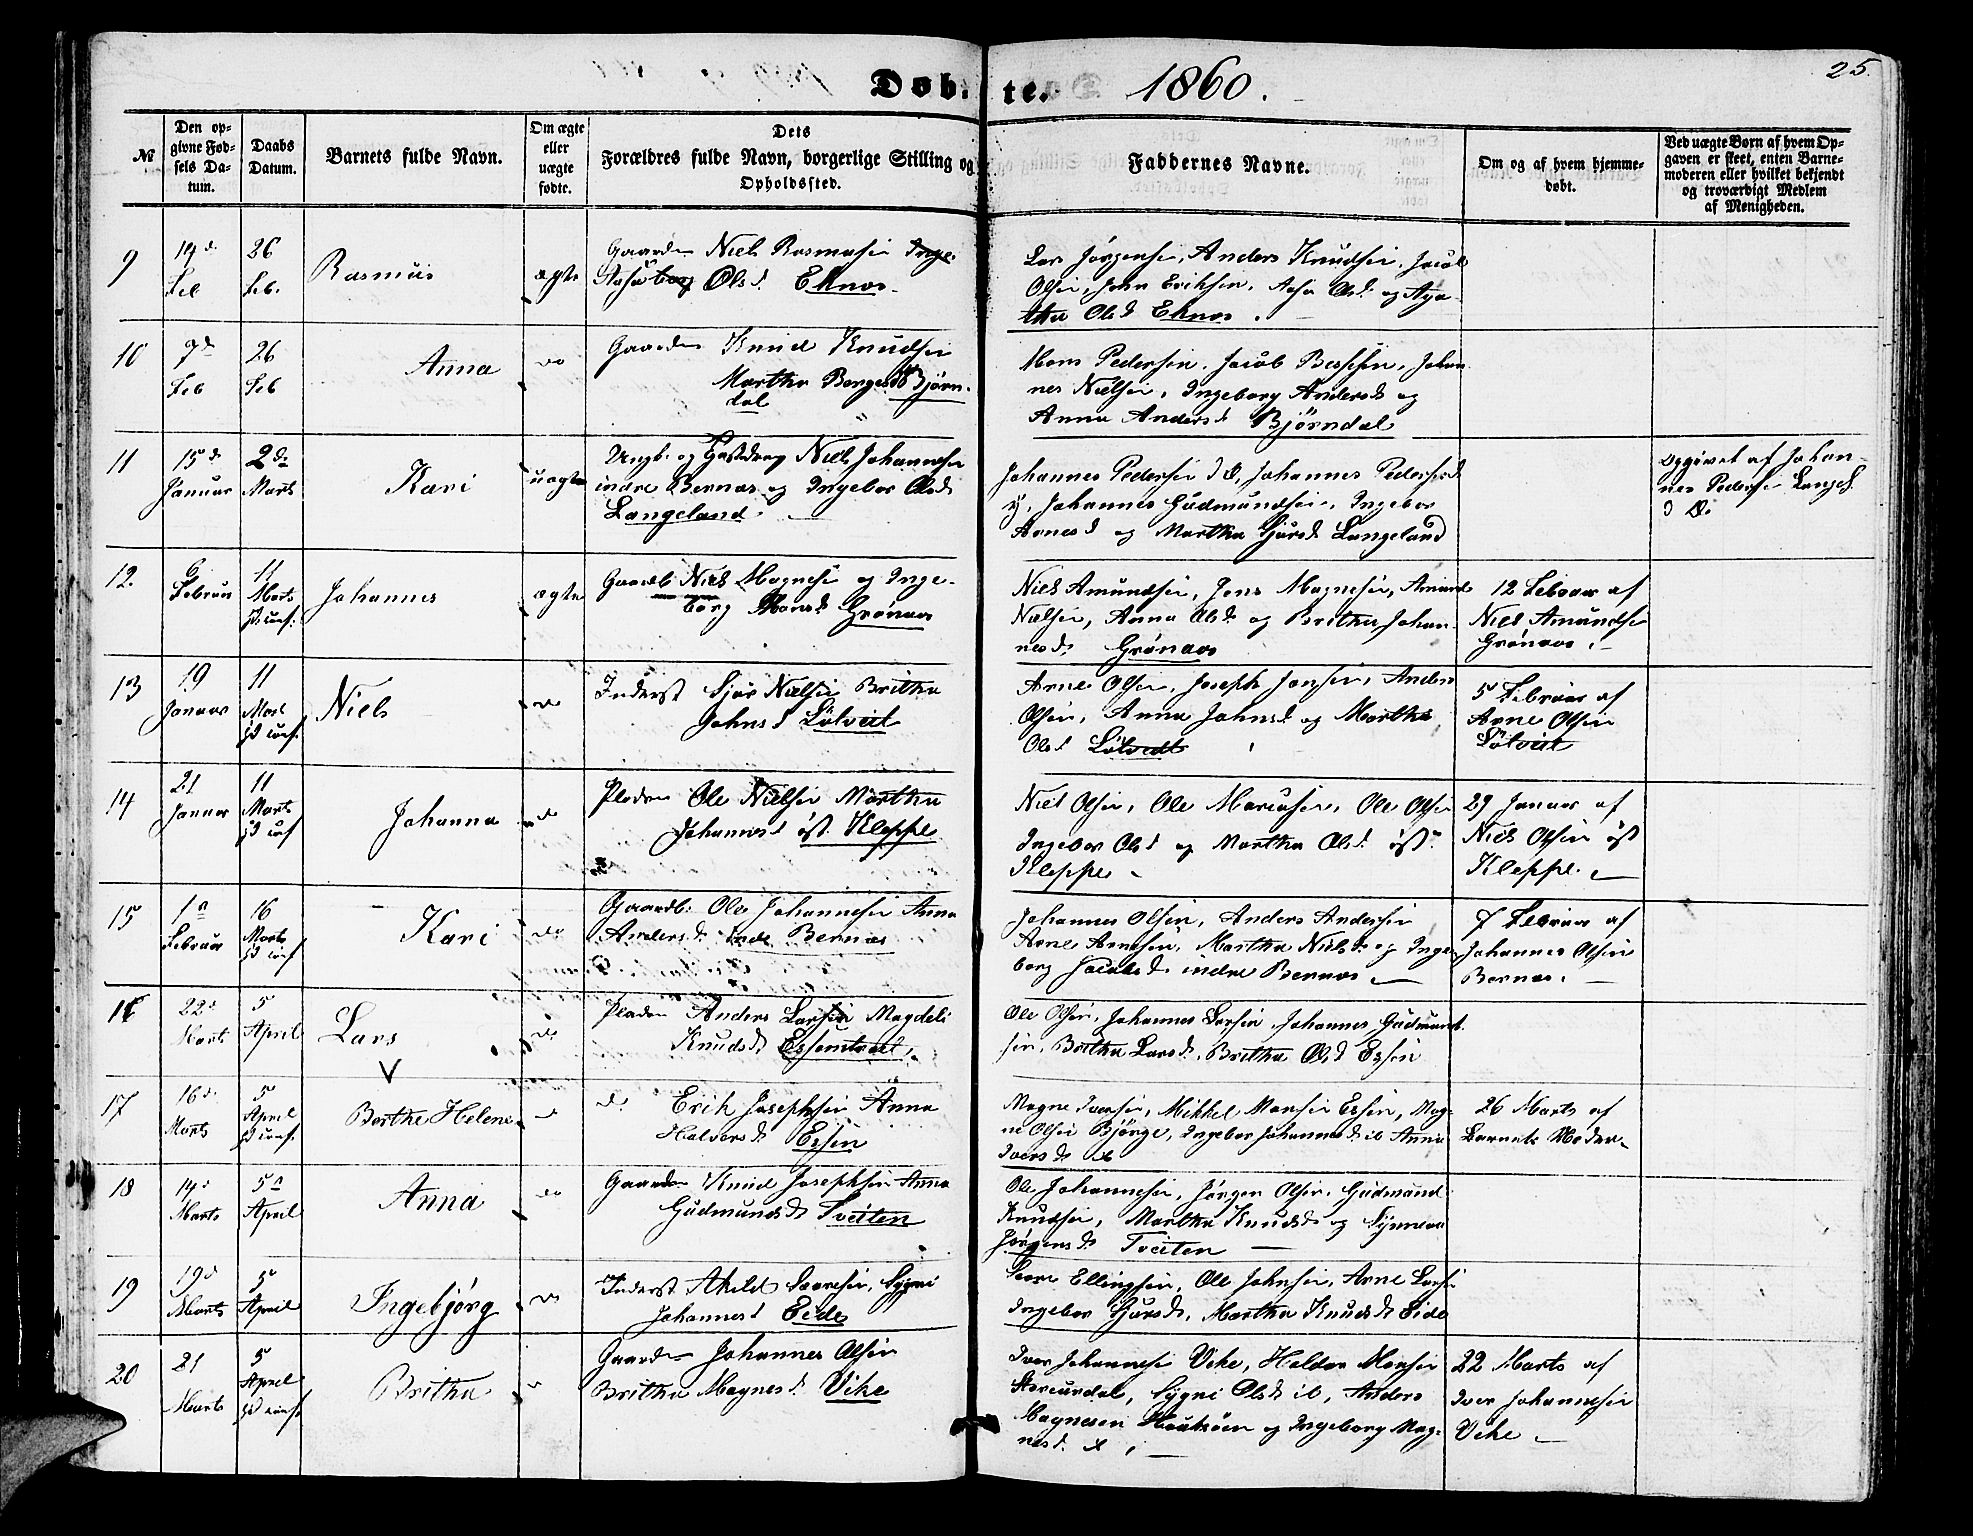 Døbte. 1860.
25.
No
Den opgivne Fødsels Datum.
Daabs Datum.
Barnets fulde Navn.
Om ægte eller uægte fødte.
Dets Forældres fulde Navn, borgerlige Stilling og Opholdssted.
Faddernes Navne.
Om og af hvem hjemmedøbt.
Ved uægte Børn af hvem Opgaven er skeet, enten Barnemoderen eller hvilket bekjendt og troværdigt Medlem af Menigheden.
9
Feb
26 Feb.
Rasmus
ægte
Niels Rasmusen
Olsd. Eknæs
Lars Jørgensen, Anders Knudsen, Jacob
Olsen, Eriksen, Olsd. og Aga-
tha Olsd Eknæs.
10
7de Feb
26 Feb
Anna
do
Gaardm Knud Knudsen
Martha Børgesd Bjørn-
dal
Mons Pedersen, Jacob Johan
nes Nielsen, Ingeborg Andersd og
Anna Andersd Bjørndal
11
15de Januar
2de Marts
Kari
uægte
Ungk. og Niels Johannesen
indre Bernæs og Ingebor Olsd
Langeland.
Johannes Pedersen d Æ, Johannes Pedersen d
y, Johannes Gudmundsen, Ingebor
Arnesd og Martha Sjursd Langeland
Opgivet af Johan-
nes Pedersen Langel.
d Æ.
12.
6 Februar
11 Marts
Johannes
ægte
Gaardb Niels Magnesen og Inge-
borg Monsd Grønaas
Niels Amundsen, Jens Magnesen, Amund
Nielsen, Anna Olsd og Britha Johan-
nesd. Grønaas
12 Februar af
Niels Amundsen
Grønaas.
13
19 Januar
11 Marts
Niels
do
Inderst Sjur Nielsen Britha
Johnsd Lølvedt
Arne Olsen, Joseph Jonsen, Anders
Olsen, Anna Johnsd og Martha
Olsd Lølvedt
5 Februar af
Arne Olsen
Lølvedt
14
21 Januar
11 Marts
Johanna
do
Pladsm Ole Nielsen Martha
Johannesd øst. Kleppe
Niels Olsen, Ole Mariusen, Ole Olsen
Ingebor Olsd og Martha Olsd øst
Kleppe
29 Januar af
Niels Olsen øst
Kleppe.
15
1ste Februar
16 Marts
Kari
do
Gaardb: Ole Johannesen Anna
Andersd. indre Bernæs
Johannes Olsen, Anders Andersen
Arne Arnesen, Martha Nielsd og Inge
borg Jacobsd indre Bernæs
7 Februar af
Johannes Olsen
Bernæs.
16
22de Marts
5 April
Lars
V
do
Pladsm Anders Larsen Magdeli
Knudsd
Ole Olsen, Johannes Larsen, Johannes Gudmund
sen, Britha Larsd, Britha Olsd Essen
17
16de Marts
5 April
Berthe Helene
do
Erik Josephsen Anna
Halvorsd Essen
Magne Iversen, Mikkel Monsen Essen, Mag-
ne Olsen Bjørge, Ingebor Johannesd ib Anna
Iversd ib
26 Marts af
Barnets Moder
18
14de Marts
5te April
Anna
do
Gaardm Knud Josephsen Anna
Gudmundsd Tveiten
Ole Johannesen, Jørgen Olsen, Gudmund
Knudsen, Martha Knudsd og Synneva
Jørgensd. Tveiten
19
19de Marts
5 April
Ingebjørg
do
Inderst Sygni
Johannesd Eide
Ellingsen, Ole Johnsen, Arne Larsen
Ingebor Sjursd, Martha Knudsd Eide
20
21 Marts
5 April
Britha
Gaardm Johannes Olsen
Britha Magnesd. Vike
Iver Johannesen Vike, Haldor Monsen
Sygni Olsd ib, Anders
Magnesen og Ingeborg Mag-
nesd. ib
22 Marts af
Iver Johannesen
Vike